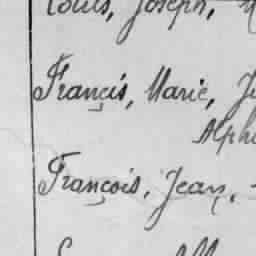 Louis, Joseph,
Francis, Marie,
François, Jean,